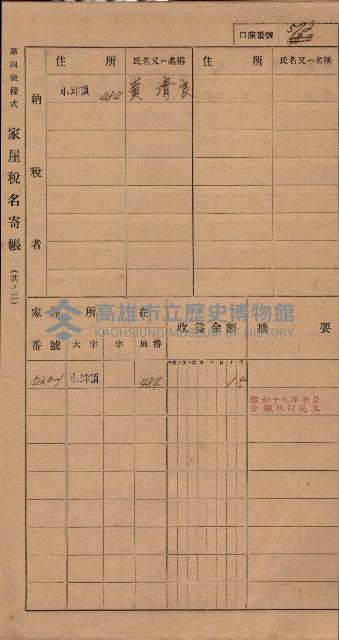 口座番號 572
第四號樣式 家屋稅名寄帳 (其ノ二)
納稅者
住所 氏名又ハ名稱 住所 氏名又ハ名稱
484 黃清良
家屋所在 收益金額 摘要
番號 大字 字 地番
520-1 484 15
高雄市立歷史博物館
KAOHSIUNG MUSEUM OF HISTORY
昭和十九年收益
金額改訂